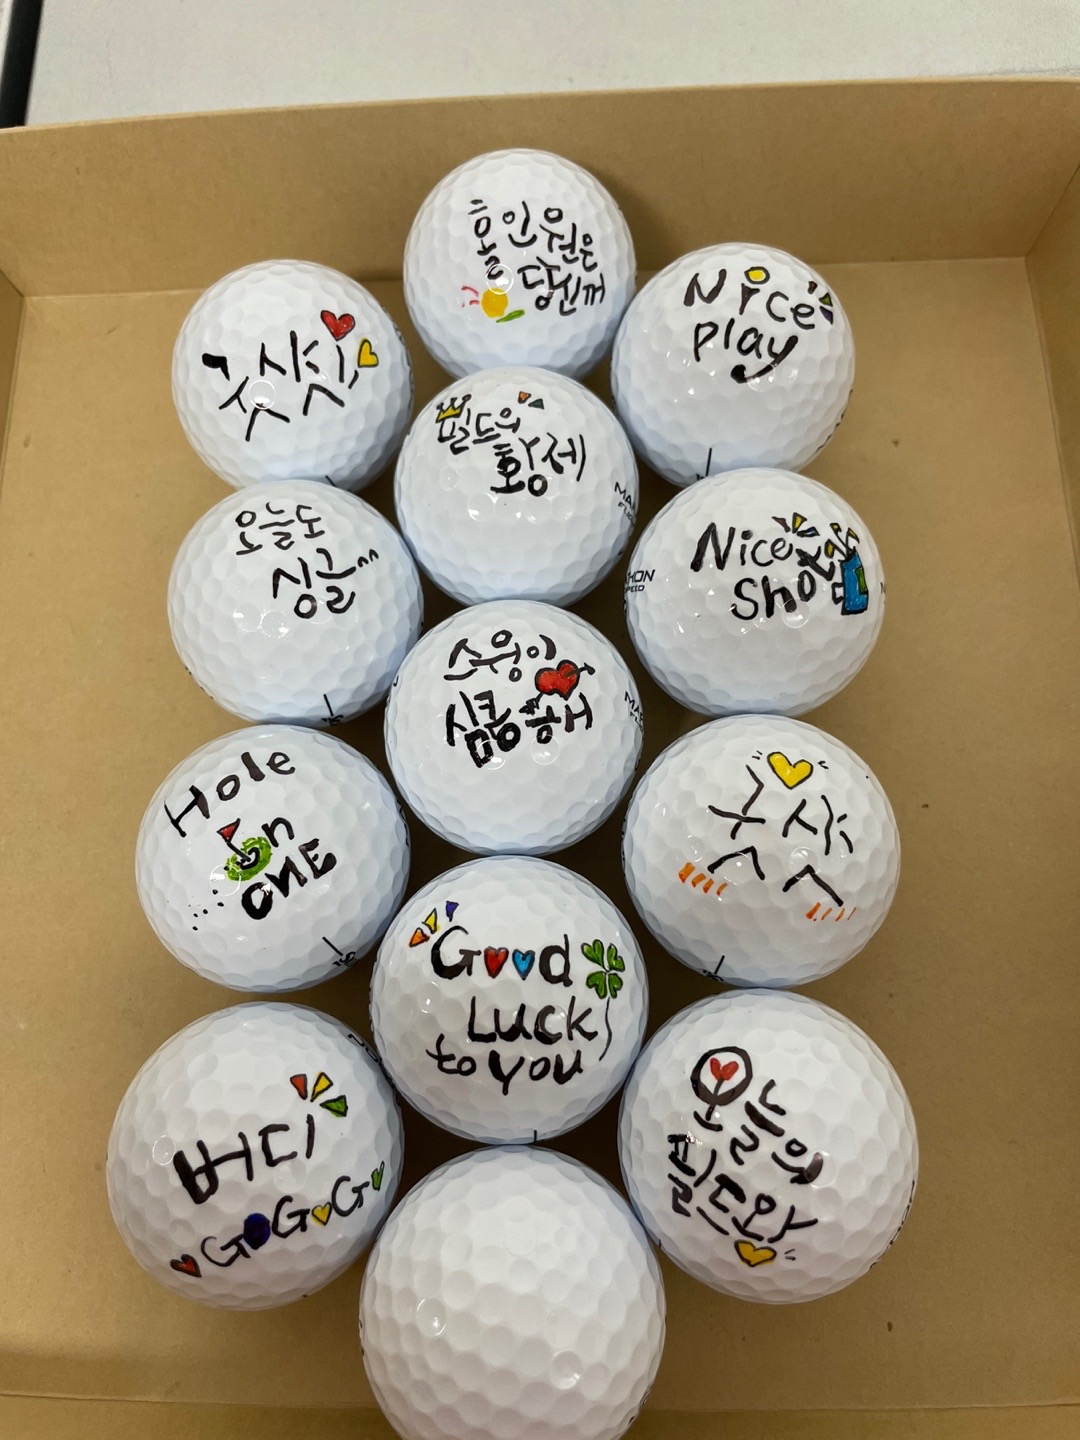 홀인원은
당신꺼
굿샷!
Nice
play
필드의
황제
오늘도
싱글^^
Nice
Shot
스윙이
심쿵해
Hole
in
ONE
굿샷
^^
Good
Luck
to you
버디
GOGOGO
오늘의
필드와